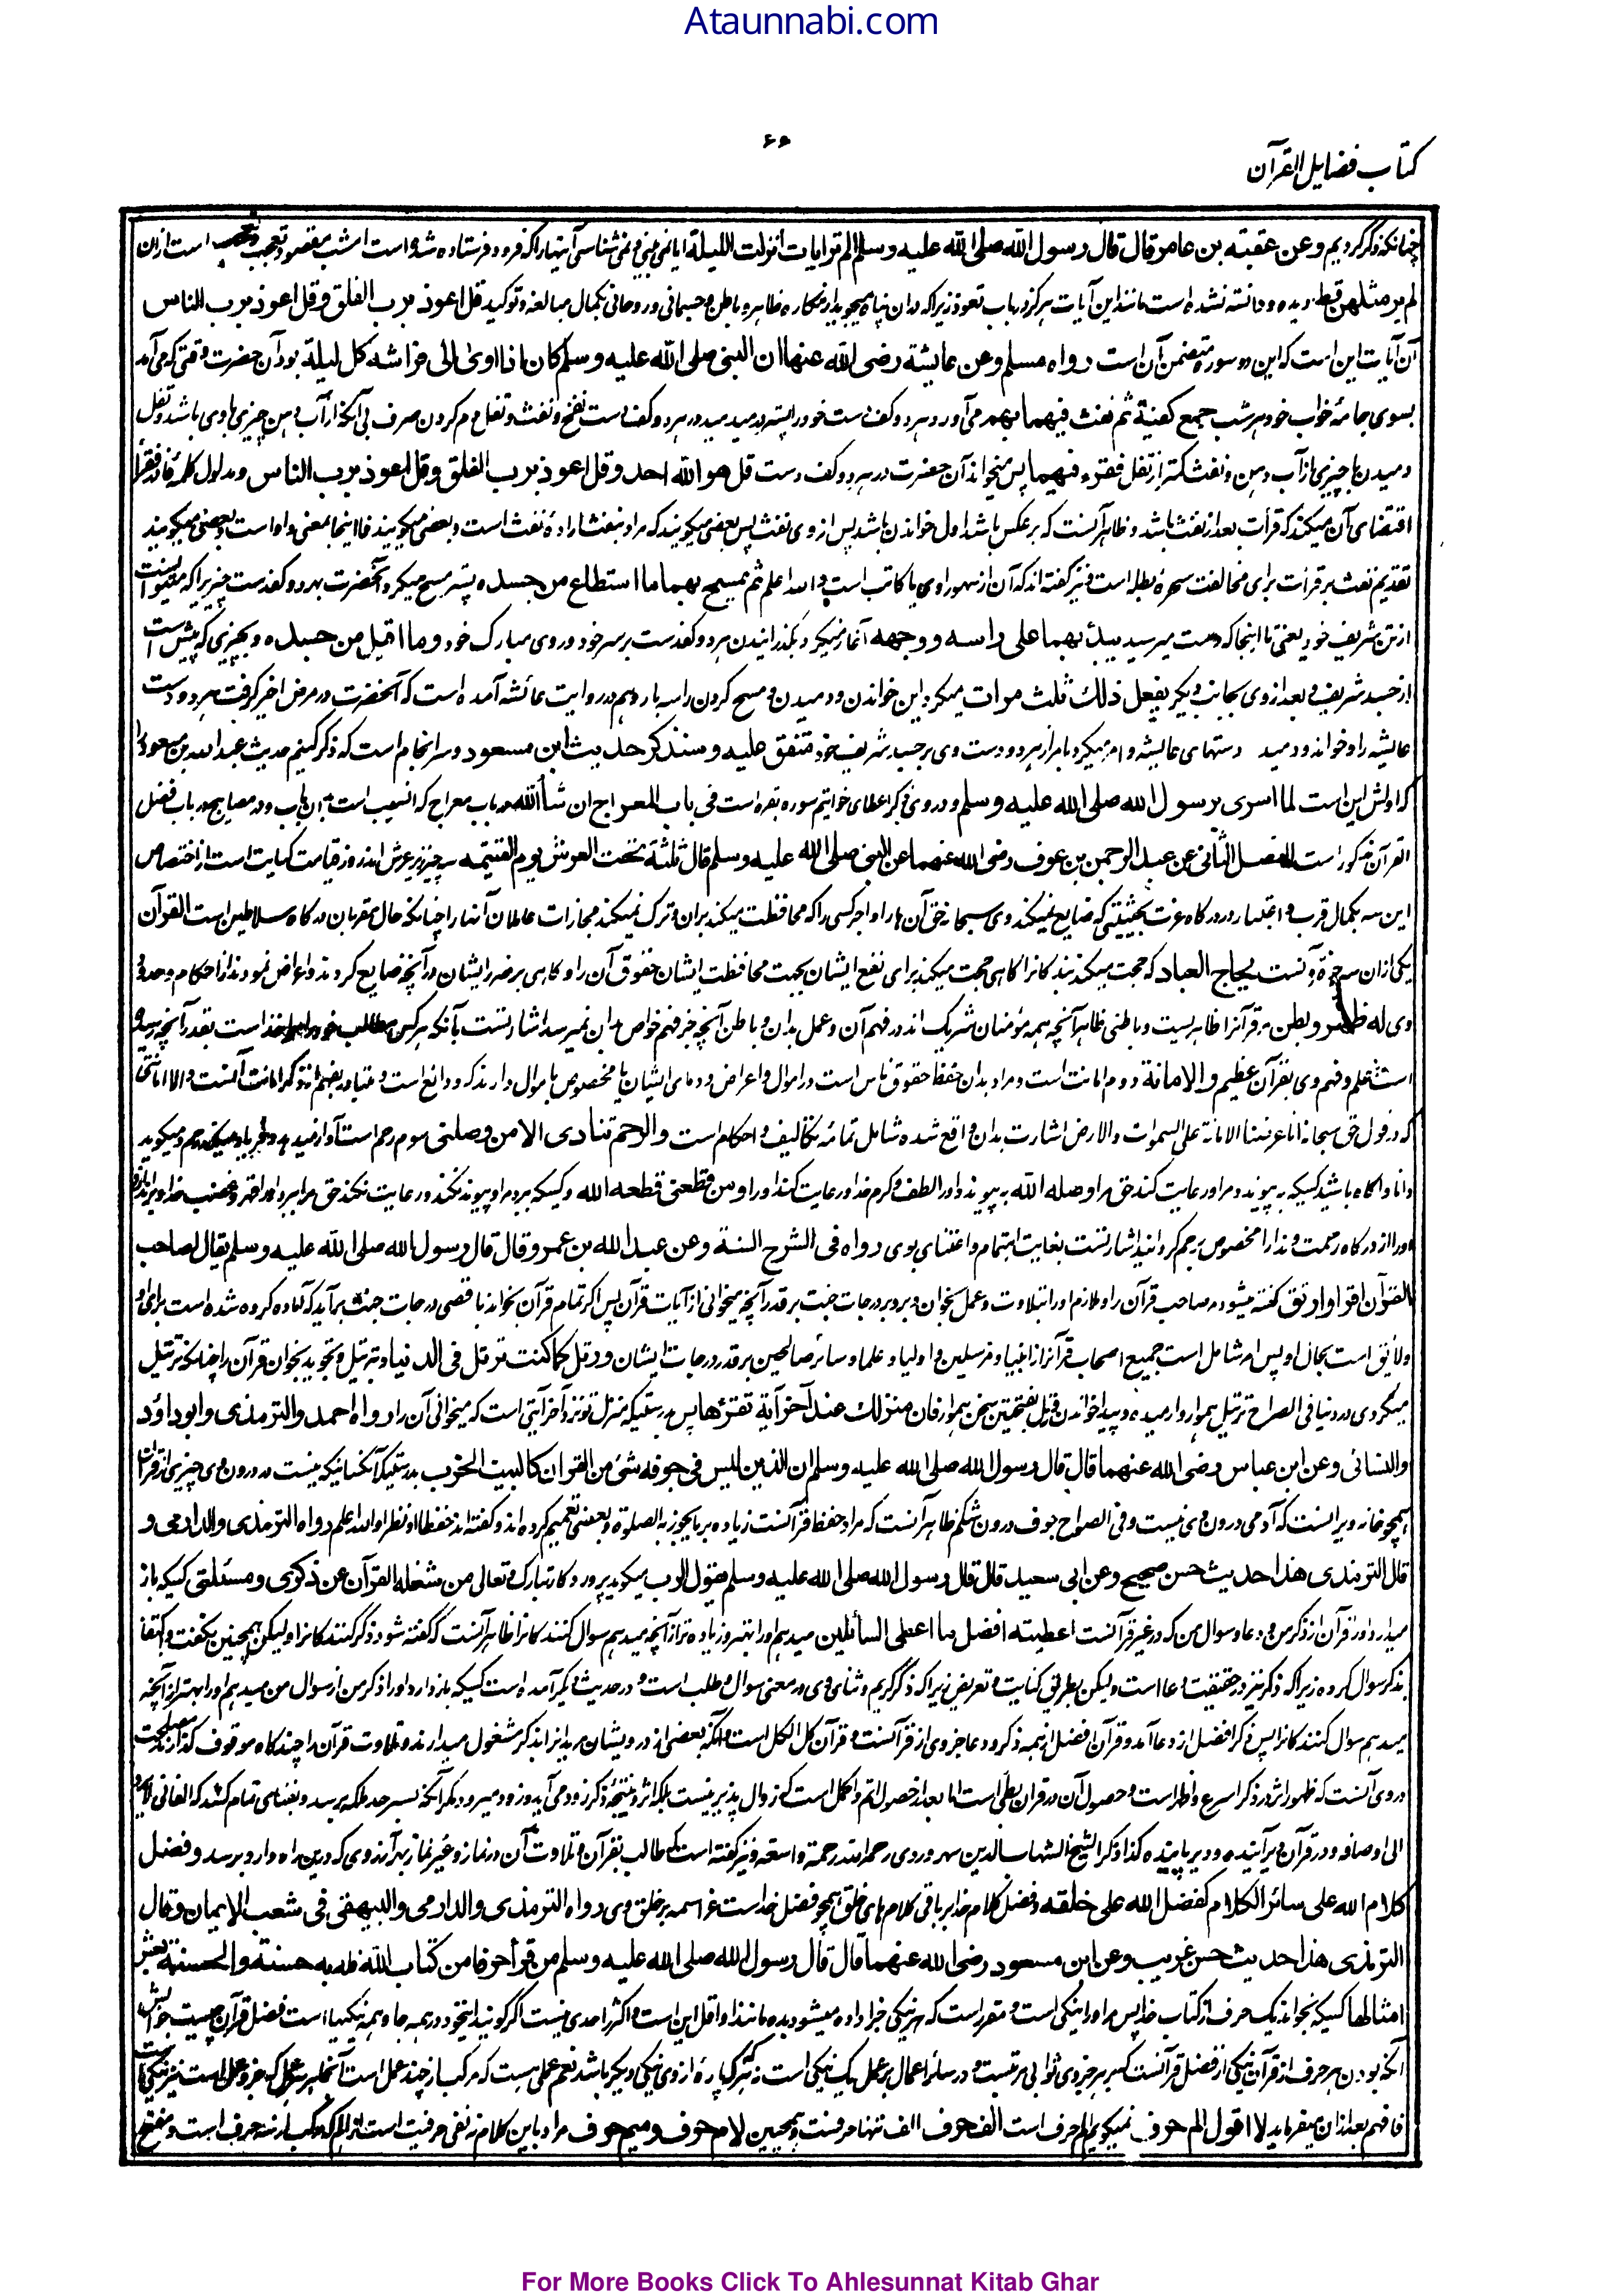 Ataunnabi.com
۶۰
کتاب فضایل القرآن
چنانکه ذکر کردیم وعن عقبة بن عامر قال قال رسول الله صلی الله علیه وسلم الم تر ایات انزلت اللیلة ایا نمی بینی و نمی شناسی آیتها را که فرود فرستاده شده است امشب مقصود تعجب است ازان
لم یر مثلهن قط دیده و دانسته نشده است مانند این آیات هرگز در باب تعوذ زیرا که دران پناه میجوید از مکاره ظاهر و باطن و جسمانی و روحانی بکمال مبالغه و توکید قل اعوذ برب الفلق وقل اعوذ برب الناس
آن آیات این است که این دو سوره متضمن آن است رواه مسلم وعن عایشة رضی الله عنها ان النبی صلی الله علیه وسلم کان اذا اوی الی فراشه کل لیلة بود آن حضرت وقتی که می آمد
بسوی جامه خواب خود هر شب جمع کفیه ثم نفث فیهما بهم می آورد هر دو کف دست خود را پستر میدمید در هر دو کف دست نفخ و نفث و تفل دم کردن صرف بی آنکه از آب دهن چیزی باوی باشد و تفل
دمیدن با چیزی از آب دهن و نفث کمتر از تفل فقرء فیهما پس میخواند آن حضرت در هر دو کف دست قل هو الله احد وقل اعوذ برب الفلق وقل اعوذ برب الناس و مدلول کلمه فا در فقرأ
اقتضای آن میکند که قرأت بعد از نفث باشد و ظاهر آنست که بر عکس باشد اول خواندن باشد پس ازوی نفث پس بعضی میگویند که مراد بنفث اراده نفث است و بعضی میگویند فا اینجا بمعنی واو است و بعضی میگویند
تقدیم نفث بر قرأت برای مخالفت سحره بطله است و نیز گفته اند که آن از سهو راوی یا کاتب است و الله اعلم ثم یمسح بهما ما استطاع من جسده پستر مسح میکرد آنحضرت بهر دو کف دست چیزیرا که میتوانست
از تن شریف خود یعنی تا اینجا که دست میرسید یبدأ بهما علی راسه ووجهه آغاز میکرد بگذرانیدن هر دو کف دست بر سر خود و روی مبارک خود وما اقبل من جسده و بچیزی که پیش است
از جسد شریف و بعد ازوی بجانب دیگر یفعل ذلک ثلث مرات میکرد این خواندن و دمیدن و مسح کردن را سه بار و هم در روایت عائشه آمده است که آنحضرت در مرض اخیر گرفت هر دو دست
عایشه را و خواند و دمید دستهای عایشه و امر میکرد بامرار هر دو دست وی بر جسد شریف خود متفق علیه وسنذکر حدیث ابن مسعود و سرانجام است که ذکر کنیم حدیث عبد الله بن مسعود را
که اولش این است لما اسری برسول الله صلی الله علیه وسلم و دروی ذکر اعطای خواتیم سوره بقره است فی باب المعراج ان شاء الله در باب معراج که انسب است بآن باب و در مصابیح در باب فضل
القرآن مذکور است الفصل الثانی عن عبد الرحمن بن عوف رضی الله عنهما عن النبی صلی الله علیه وسلم قال ثلثة تحت العرش یوم القیمة سه چیز زیر عرش اند روز قیامت کنایت است از اختصاص
این سه بکمال قرب و اعتبار در درگاه عزت بحیثیتی که ضایع نمیکند وی سبحانه حق آن ها را و اجر کسی را که محافظت میکند بران و ترک نمیکند مجازات عاملان آنها را چنانکه حال مقربان درگاه سلاطین است القرآن
یکی ازان سه چیز قرآنست یحاج العباد که حجت میکند بندگانرا گاهی حجت میکند برای نفع ایشان بجهت محافظت ایشان حقوق آن را و گاهی بر ضرر ایشان در آنچه ضایع کردند و اعراض نمودند از احکام و حدود
وی له ظهر وبطن مر قرآنرا ظاهریست و باطنی ظاهر آنچه همه مؤمنان شریک اند در فهم آن و عمل بدان و باطن آنچه جز فهم خواص بدان نمیرسد اشارتست بآنکه هرکس مطالب خود را ماخذ است بقدر آنچه رسد
است علم و فهم وی بقرآن عظیم والامانة دوم امانت است و مراد بدان حفظ حقوق ناس است در اموال و اعراض و دمای ایشان یا مخصوص باموال دارند که ودائع است و متبادر بفهم از ذکر امانت آنست و الا امانتی
که در قول حق سبحانه انا عرضنا الامانة علی السموات والارض اشارت بدان واقع شده شامل تمامه تکالیف و احکام است والرحم تنادی الا من وصلنی سوم رحم است آواز میدهد و فریاد میکند رحم و میگوید
دانا و آگاه باشید کسیکه بپیوندد مرا و رعایت کند حق مرا وصله الله بپیوندد او را لطف و کرم خدا و رعایت کند او را ومن قطعنی قطعه الله و کسیکه ببرد مرا و پیوند نکند و رعایت نکند حق مرا ببرد او را قهر و غضب خدا و براند
او را از درگاه رحمت و ندا را مخصوص برحم گردانید اشارتست بغایت اهتمام و اعتنای بوی رواه فی الشرح السنة وعن عبد الله بن عمرو قال قال رسول الله صلی الله علیه وسلم یقال لصاحب
القرآن اقرا وارتق گفته میشود مر صاحب قرآن را و ملازم او را بتلاوت و عمل بخوان و برو بر درجات جنت بر قدر آنچه میخوانی از آیات قرآن پس اگر تمام قرآن بخواند باقصی درجات جنت برآید که آماده کرده شده است برای او
و لائق است بحال او پس امر شامل است جمیع اصحاب قرآنرا از انبیا و مرسلین و اولیا و علما و سائر صالحین بر قدر درجات ایشان ورتل کما کنت ترتل فی الدنیا و ترتیل و تجوید بخوان قرآن را چنانکه ترتیل
میکردی در دنیا فی الصراح ترتیل هموار و آرمیده و پیدا خواندن قرآن رتل بفتحتین سخن هموار فان منزلک عند آخر آیة تقرؤها پس بدرستیکه منزل تو نزد آخر آیتی است که میخوانی آن را رواه احمد والترمذی وابوداؤد
والنسائی وعن ابن عباس رضی الله عنهما قال قال رسول الله صلی الله علیه وسلم ان الذین لیس فی جوفه شئ من القرآن کالبیت الخرب بدرستیکه آنکسانیکه نیست در درون وی چیزی از قرآن
همچو خانه ویرانست که آدمی درون وی نیست و فی الصراح جوف درون شکم ظاهر آنست که مراد حفظ قرآنست زیاده بر ما یجوز به الصلوة و بعضی تعمیم کرده اند و گفته اند حفظا او نظرا و الله اعلم رواه الترمذی والدارمی و
قال الترمذی هذا حدیث حسن صحیح وعن ابی سعید قال قال رسول الله صلی الله علیه وسلم یقول الرب میگوید پروردگار تبارک و تعالی من شغله القرآن عن ذکری ومسئلتی کسیکه باز
میدارد او را قرآن از ذکر من و دعا و سوال من که در غیر قرآنست اعطیته افضل ما اعطی السائلین میدهم او را بهتر و زیاده تر از آنچه میدهم سوال کنندگانرا ظاهر آنست که گفته شود ذکر کنندگانرا و لیکن همچنین نگفت و اکتفا
بذکر سوال کرده زیرا که ذکر نیز در حقیقت دعا است و لیکن بطریق کنایت و تعریض زیرا که ذکر کریم و ثنای وی در معنی سوال و طلب است و در حدیث دیگر آمده است کسیکه باز دارد او را ذکر من از سوال من میدهم او را بهتر از آنچه
میدهم سوال کنندگانرا پس ذکر افضل از دعا آمد و قرآن افضل از همه ذکر و دعا جزوی از قرآنست و قرآن کل الکل است و آنکه بعضی از درویشان مریدانرا بذکر مشغول میدارند و تلاوت قرآن را چندگاه موقوف گذارند مصلحت
دروی آنست که ظهور اثر در ذکر اسرع و اظهر است و حصول آن در قرآن بطی است اما بعد از حصول اتم و اکمل است که زوال پذیر نیست بلکه اثر و نتیجه ذکر زود می آید و زود میرود مگر آنکه بسرحد ملکه برسد و بفنای تمام کشد که الفانی لا یرد
الی اوصافه و در قرآن دیر آینده و دیر پاینده کذا ذکر الشیخ الشهاب الدین سهروردی رحمه الله رحمة واسعة و نیز گفته است که طالب بقرآن و تلاوت آن در نماز و غیر نماز بهر آرزوی که درین راه دارد برسد وفضل
کلام الله علی سائر الکلام کفضل الله علی خلقه و فضل کلام خدا بر باقی کلام های خلق همچو فضل خداست عز اسمه بر خلق وی رواه الترمذی والدارمی والبیهقی فی شعب الایمان وقال
الترمذی هذا حدیث حسن غریب وعن ابن مسعود رضی الله عنهما قال قال رسول الله صلی الله علیه وسلم من قرأ حرفا من کتاب الله فله به حسنة والحسنة بعشر
امثالها کسیکه بخواند یک حرف از کتاب خدا پس مر او را نیکی است و مقرر است که هر نیکی جزا داده میشود بده مانند او اقل این است و اکثر را حدی نیست اگر گویند این خود در همه جا و همه نیکیها است فضل قرآن چیست جوابش
آنکه بودن هر حرف از قرآن نیکی از فضل قرآنست که بر هر جزوی ثوابی مرتبست و در سائر اعمال بر عمل یک نیکی است نه بر هر پاره ازوی نیکی دیگر باشد نعم عملی هست که مرکب از چند عمل است آنجا بر هر عمل که جزو عمل است نیز نیکی است
فافهم بعد ازان میفرماید لا اقول الم حرف نمیگویم الم حرف است الف حرف الف تنها حرفست و همچنین لام حرف ومیم حرف مراد باین کلام نه نفی حرفیت است از الم که مرکب از سه حرف است و مفتح
For More Books Click To Ahlesunnat Kitab Ghar